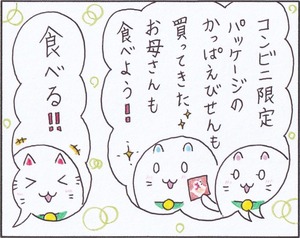 コンビニ限定
パッケージの
かっぱえびせんも
買ってきた
お母さんも
食べよう!!
食べる!!